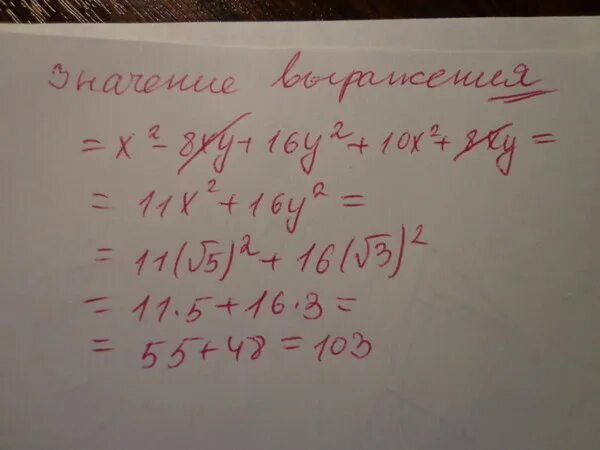 Значение выражения
= x² - 8xy + 16y² + 10x² + 8xy =
= 11x² + 16y² =
= 11(√5)² + 16(√3)²
= 11·5 + 16·3 =
= 55 + 48 = 103